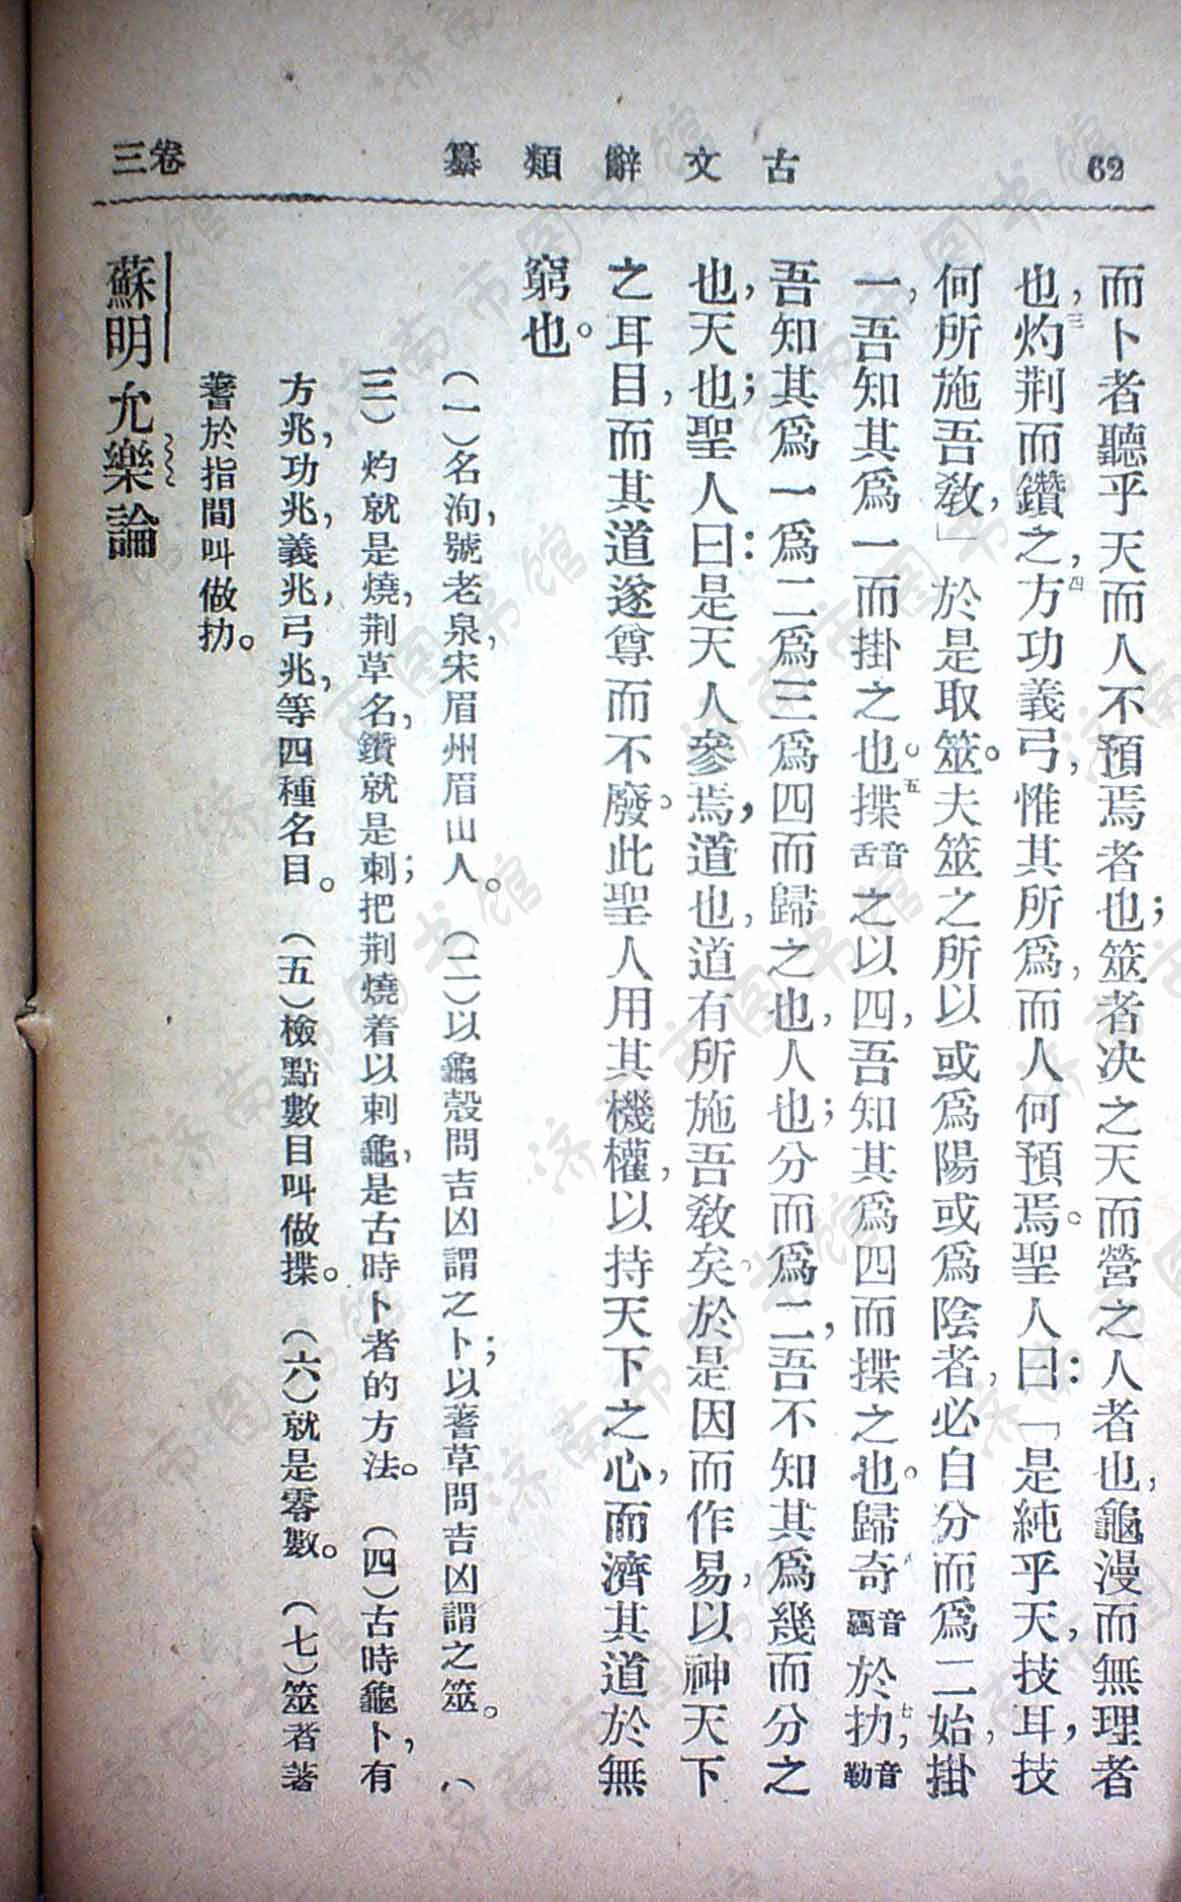 62
古文辭類纂
卷三
而卜者聽乎天而人不預焉者也；筮者决之天而營之人者也，龜漫而無理者
也，灼荆而鑽之，方功義弓，惟其所爲，而人何預焉。聖人曰：「是純乎天，技耳，技
何所施吾敎，」於是取筮。夫筮之所以或爲陽或爲陰者，必自分而爲二始，掛
一，吾知其爲一而掛之也。揲音舌之以四，吾知其爲四而揲之也。歸奇音羈於扐，音勒
吾知其爲一爲二爲三爲四而歸之也，人也；分而爲二，吾不知其爲幾而分之
也，天也；聖人曰：是天人參焉，道也，道有所施吾敎矣。於是因而作易，以神天下
之耳目，而其道遂尊而不廢。此聖人用其機權，以持天下之心，而濟其道於無
窮也。
（一）名洵，號老泉，宋眉州眉山人。（二）以龜殼問吉凶謂之卜；以蓍草問吉凶謂之筮。（
三）灼就是燒，荆草名，鑽就是刺；把荆燒着以刺龜，是古時卜者的方法。（四）古時龜卜，有
方兆，功兆，義兆，弓兆，等四種名目。（五）檢點數目叫做揲。（六）就是零數。（七）筮者著
蓍於指間叫做扐。
蘇明允樂論